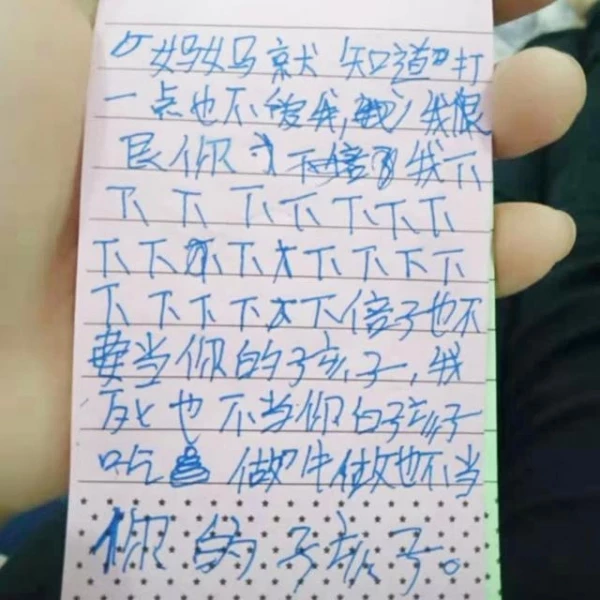 个妈妈就知道打
一点也不爱我,我很
艮你 下倍了我下
下下下下下下下
下下下下下下下下下
下下下下下下倍子也不
要当你的孩子,我
死也不当你的孩子
吃 做牛做也不当
你的孩子。